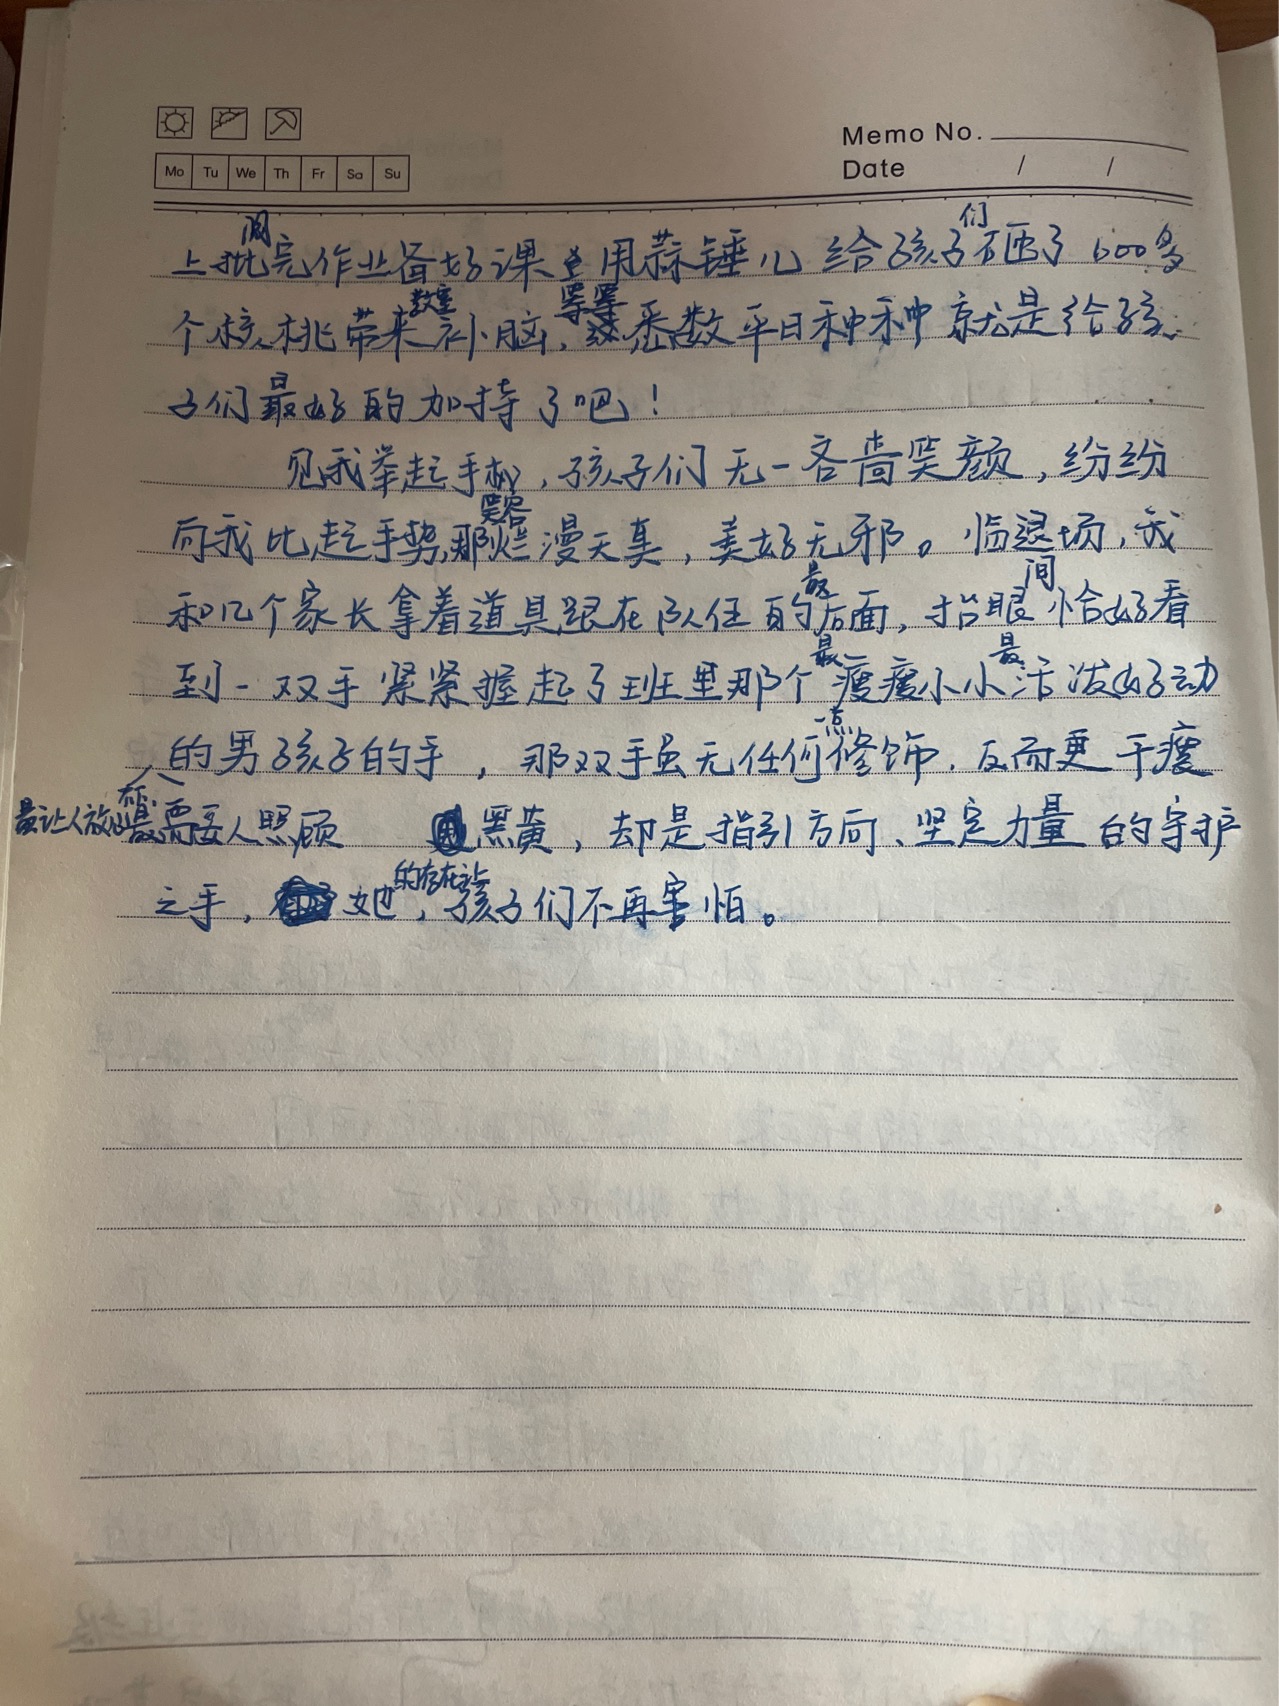 Memo No.
Date / /
Mo Tu We Th Fr Sa Su
间 们
上批完作业备好课用蒜锤儿给孩子砸了600多
教室 等等
个核桃带来补脑，悉数平日种种就是给孩
子们最好的加持了吧！
见我举起手机，孩子们无一吝啬笑颜，纷纷
笑容
向我比起手势，那烂漫天真，美好无邪。临退场，我
最 间
和几个家长拿着道具跟在队伍的后面，抬眼恰好看
最 最
到一双手紧紧握起了班里那个瘦瘦小小活泼好动
一点
的男孩子的手，那双手虽无任何修饰，反而更干瘦
最让人放心不
最需要人照顾
黑黄，却是指引方向、坚定力量的守护
的存在让
之手，她，孩子们不再害怕。